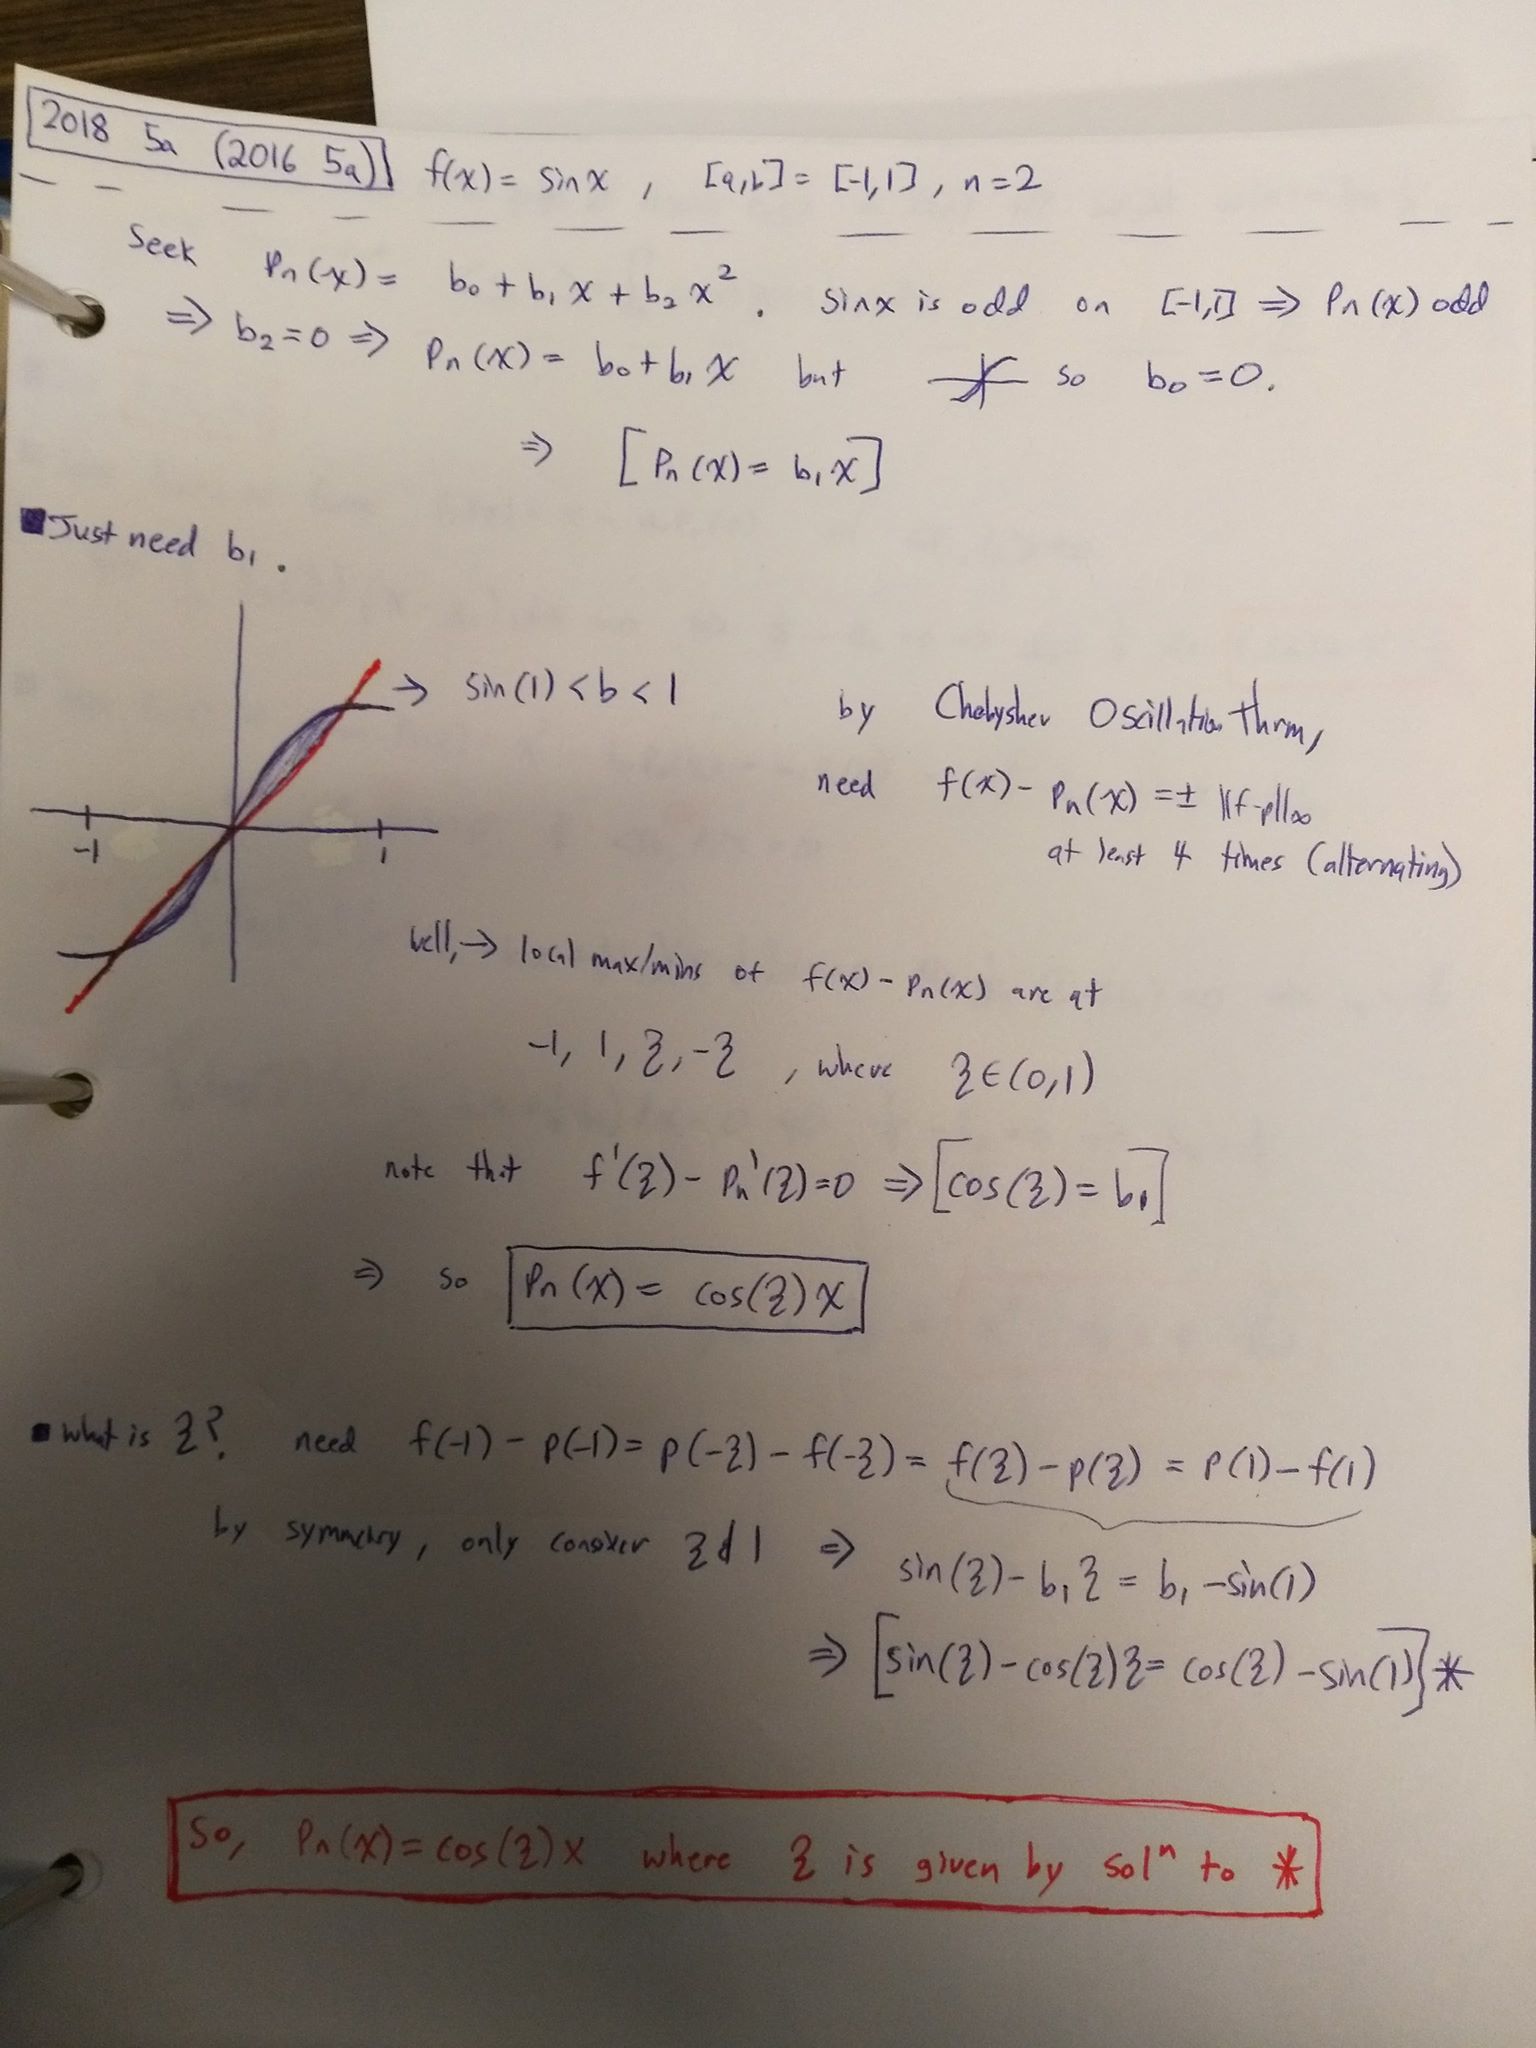 2018 5a (2016 5a) f(x) = sin x , [a,b] = [-1,1] , n=2
Seek Pn(x) = b₀ + b₁x + b₂x² . sinx is odd on [-1,1] ⇒ Pn(x) odd
⇒ b₂=0 ⇒ Pn(x) = b₀ + b₁x but so b₀ = 0.
⇒ [Pn(x) = b₁x]
Just need b₁ .
→ sin(1) < b < 1
by Chebyshev Oscillation thrm,
need f(x) - Pn(x) = ± ||f-p||∞
at least 4 times (alternating)
-1 1
well, → local max/mins of f(x) - Pn(x) are at
-1, 1, ξ, -ξ , where ξ ∈ (0,1)
note that f'(ξ) - Pn'(ξ) = 0 ⇒ [cos(ξ) = b₁]
⇒ so Pn(x) = cos(ξ) x
▪ what is ξ? need f(-1) - p(-1) = p(-ξ) - f(-ξ) = f(ξ) - p(ξ) = p(1) - f(1)
by symmetry, only consider ξ & 1 ⇒ sin(ξ) - b₁ξ = b₁ - sin(1)
⇒ [sin(ξ) - cos(ξ)ξ = cos(ξ) - sin(1)] *
So, Pn(x) = cos(ξ)x where ξ is given by solⁿ to *